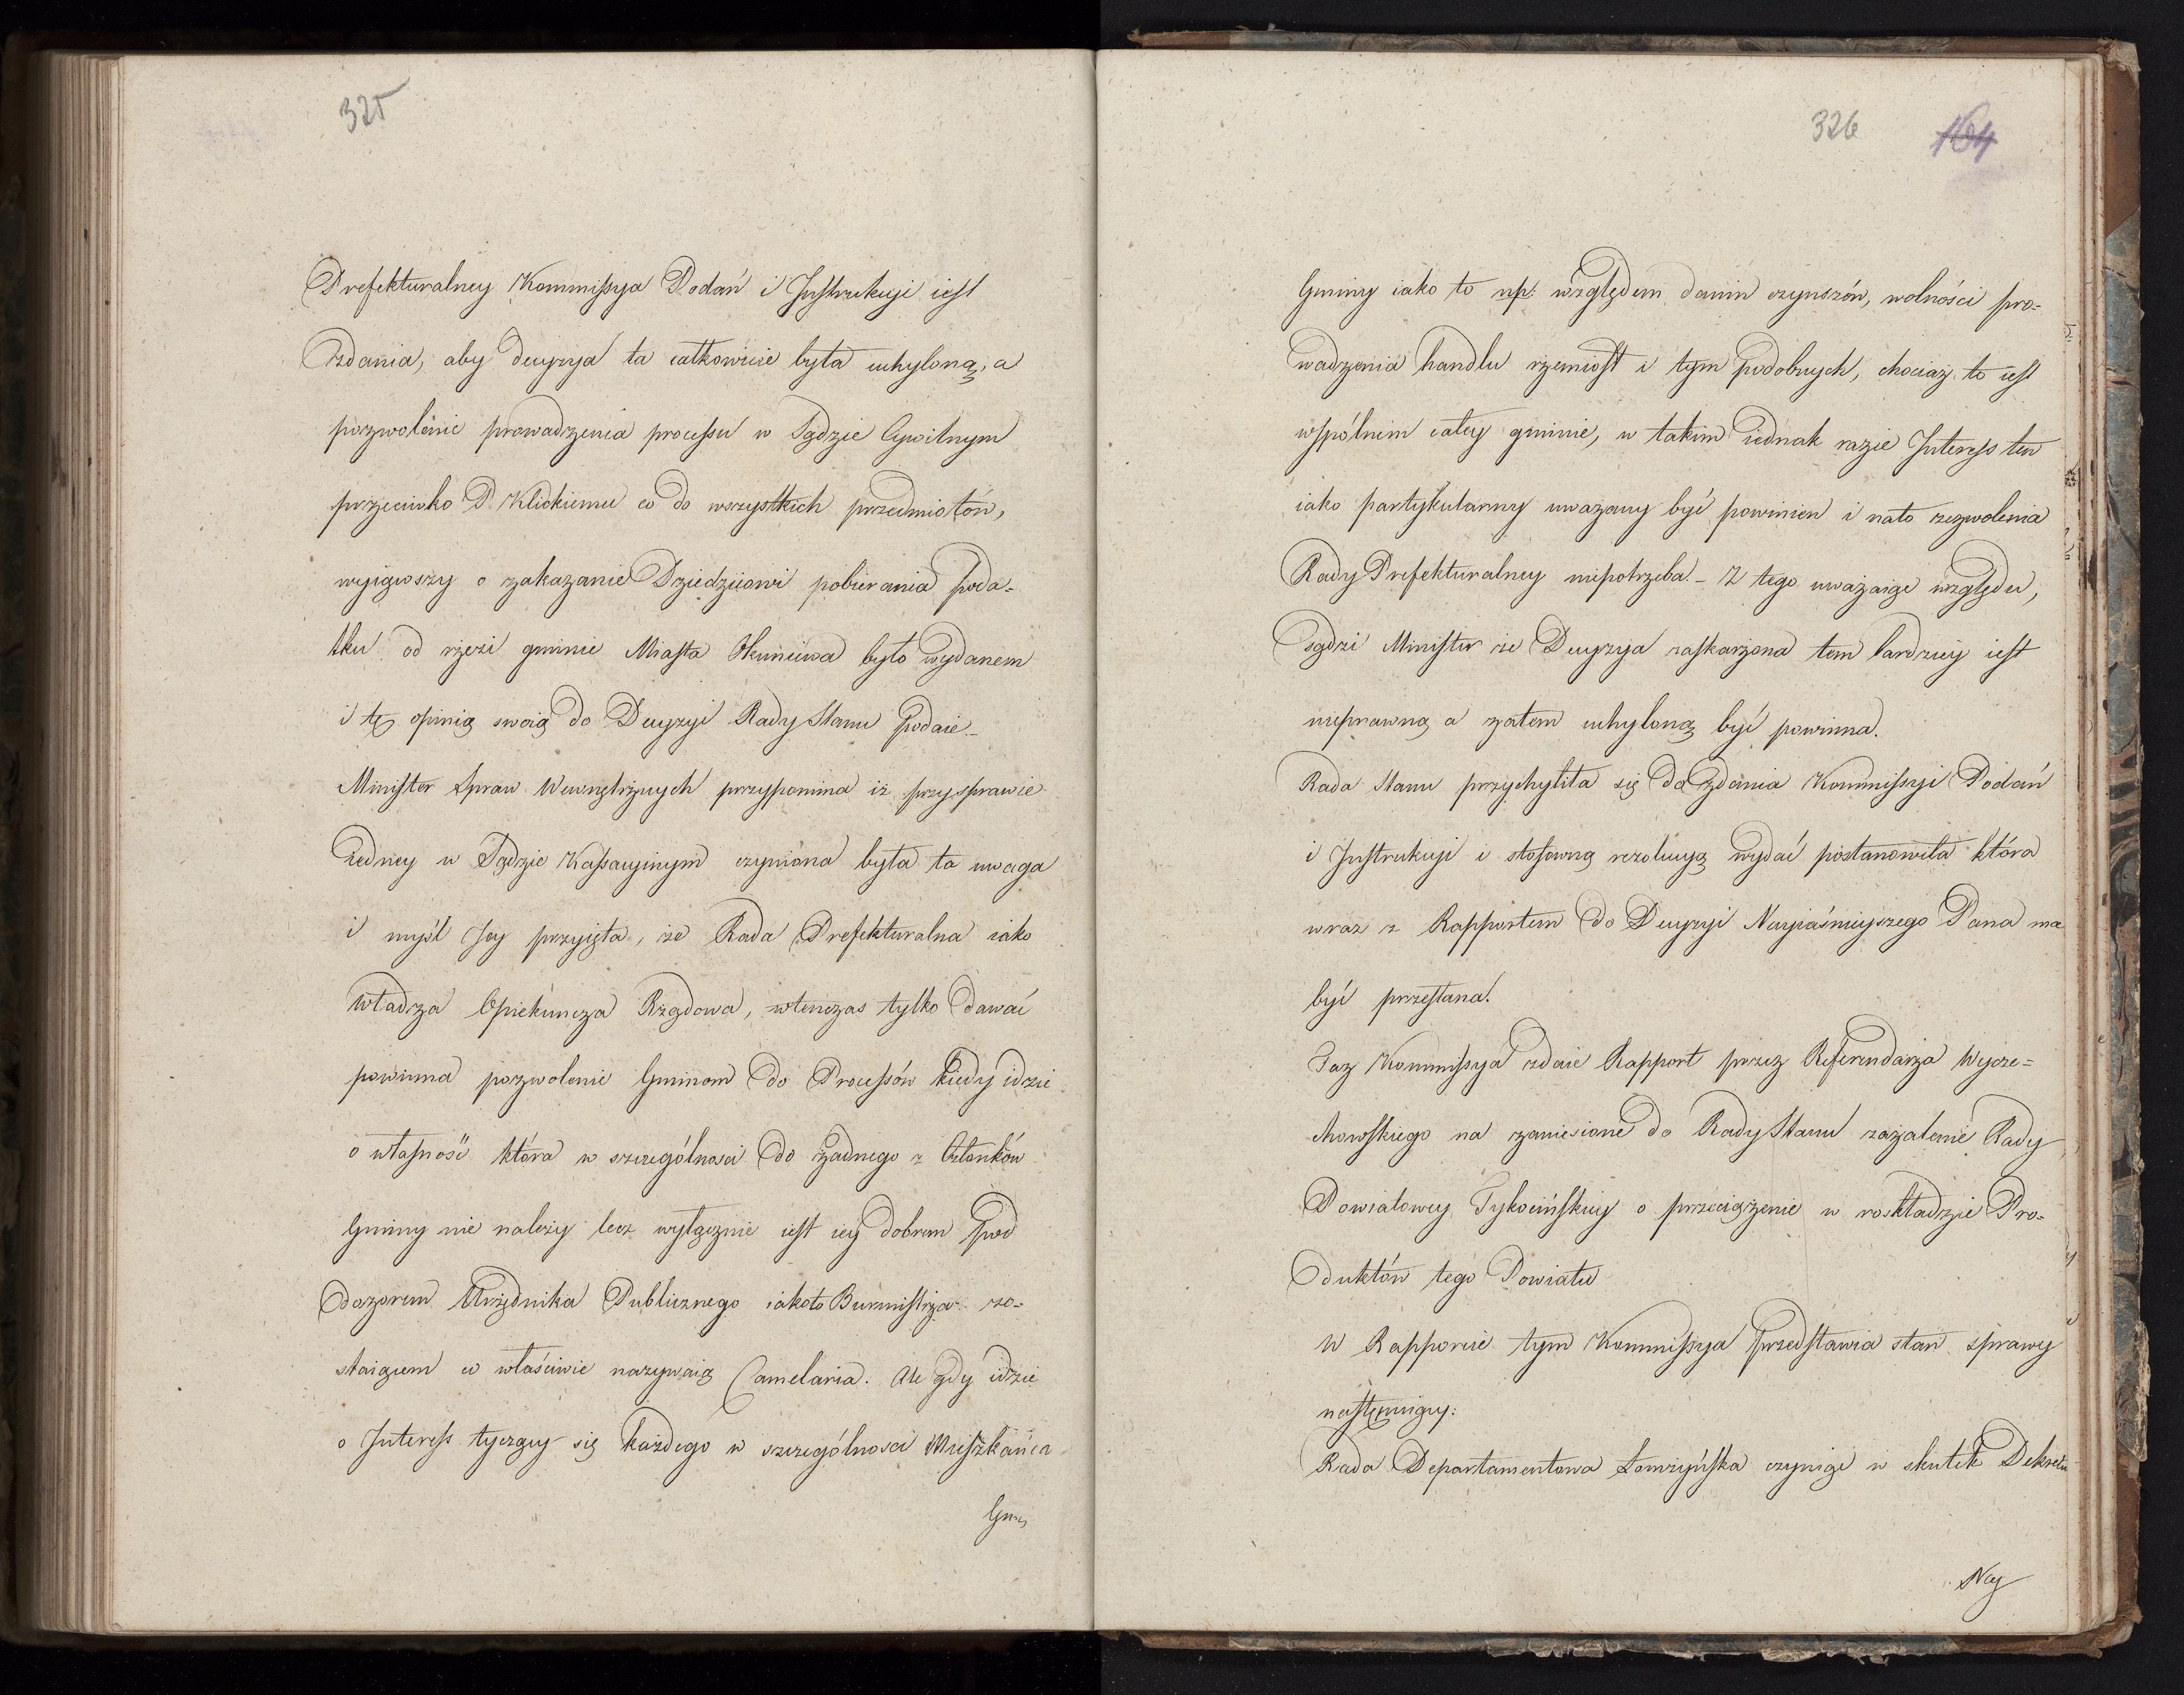 325
Prefekturalney Kommissya Podań i Instrukcyi iest
zdania, aby decyzya ta całkowicie była uchyloną, a
pozwolenie prowadzenia processu w Sądzie Cywilnym
przeciwko P. Klickiemu co do wszystkich przedmiotów,
wyiąwszy o zakazanie Dziedzicowi pobierania poda=
tku od rzezi gminie Miasta Okuniewa było wydanem
i tę opinią swoią do Decyzyi Rady Stanu podaie.
Minister Spraw Wewnętrznych przypomina iż przy sprawie
iedney w Sądzie Kassacyinym czyniona była ta uwaga
i myśl Jey przyięta, że Rada Prefekturalna iako
Władza Opiekuńcza Rządowa, wtenczas tylko dawać
powinna pozwolenie Gminom do Processów kiedy idzie
o własność która w szczególnosci do żadnego z Członków
Gminy nie należy lecz wyłącznie iest iey dobrem pod
dozorem Urzędnika Publicznego iakoto Burmistrza zo=
staiącem co właściwie nazywaią Camelaria. Ale gdy idzie
o Interess tyczący się każdego w szczególnosci Mieszkańca
Gmi
326 164
Gminy iako to np: względem danin czynszów, wolności pro=
wadzenia handlu rzemiosł i tym podobnych, chociaż to iest
wspólnem całey gminie, w takim iednak razie Interess ten
iako partykularny uważany być powinien i nato zezwolenia
Rady Prefekturalney niepotrzeba - Z tego uważaiąc względu,
sądzi Minister że Decyzya zaskarżona tem bardziey iest
nieprawną a zatem uchyloną być powinna.
Rada Stanu przychyliła się do zdania Kommissyi Podań
i Instrukcyi i stosowną rezolucyą wydać postanowiła która
wraz z Rapportem do Decyzyi Nayiaśnieyszego Pana ma
być przesłana.
Taż Kommissya zdaie Rapport przez Referendarza Wycze=
chowskiego na zaniesione do Rady Stanu zażalenie Rady
Powiatowey Tykocińskiey o przeciążenie w roskładzie Pro=
duktów tego Powiatu
W Rapporcie tym Kommissya przedstawia stan sprawy
następuiący:
Rada Departamentowa Łomżyńska czyniąc w skutek Dekretu
Nay